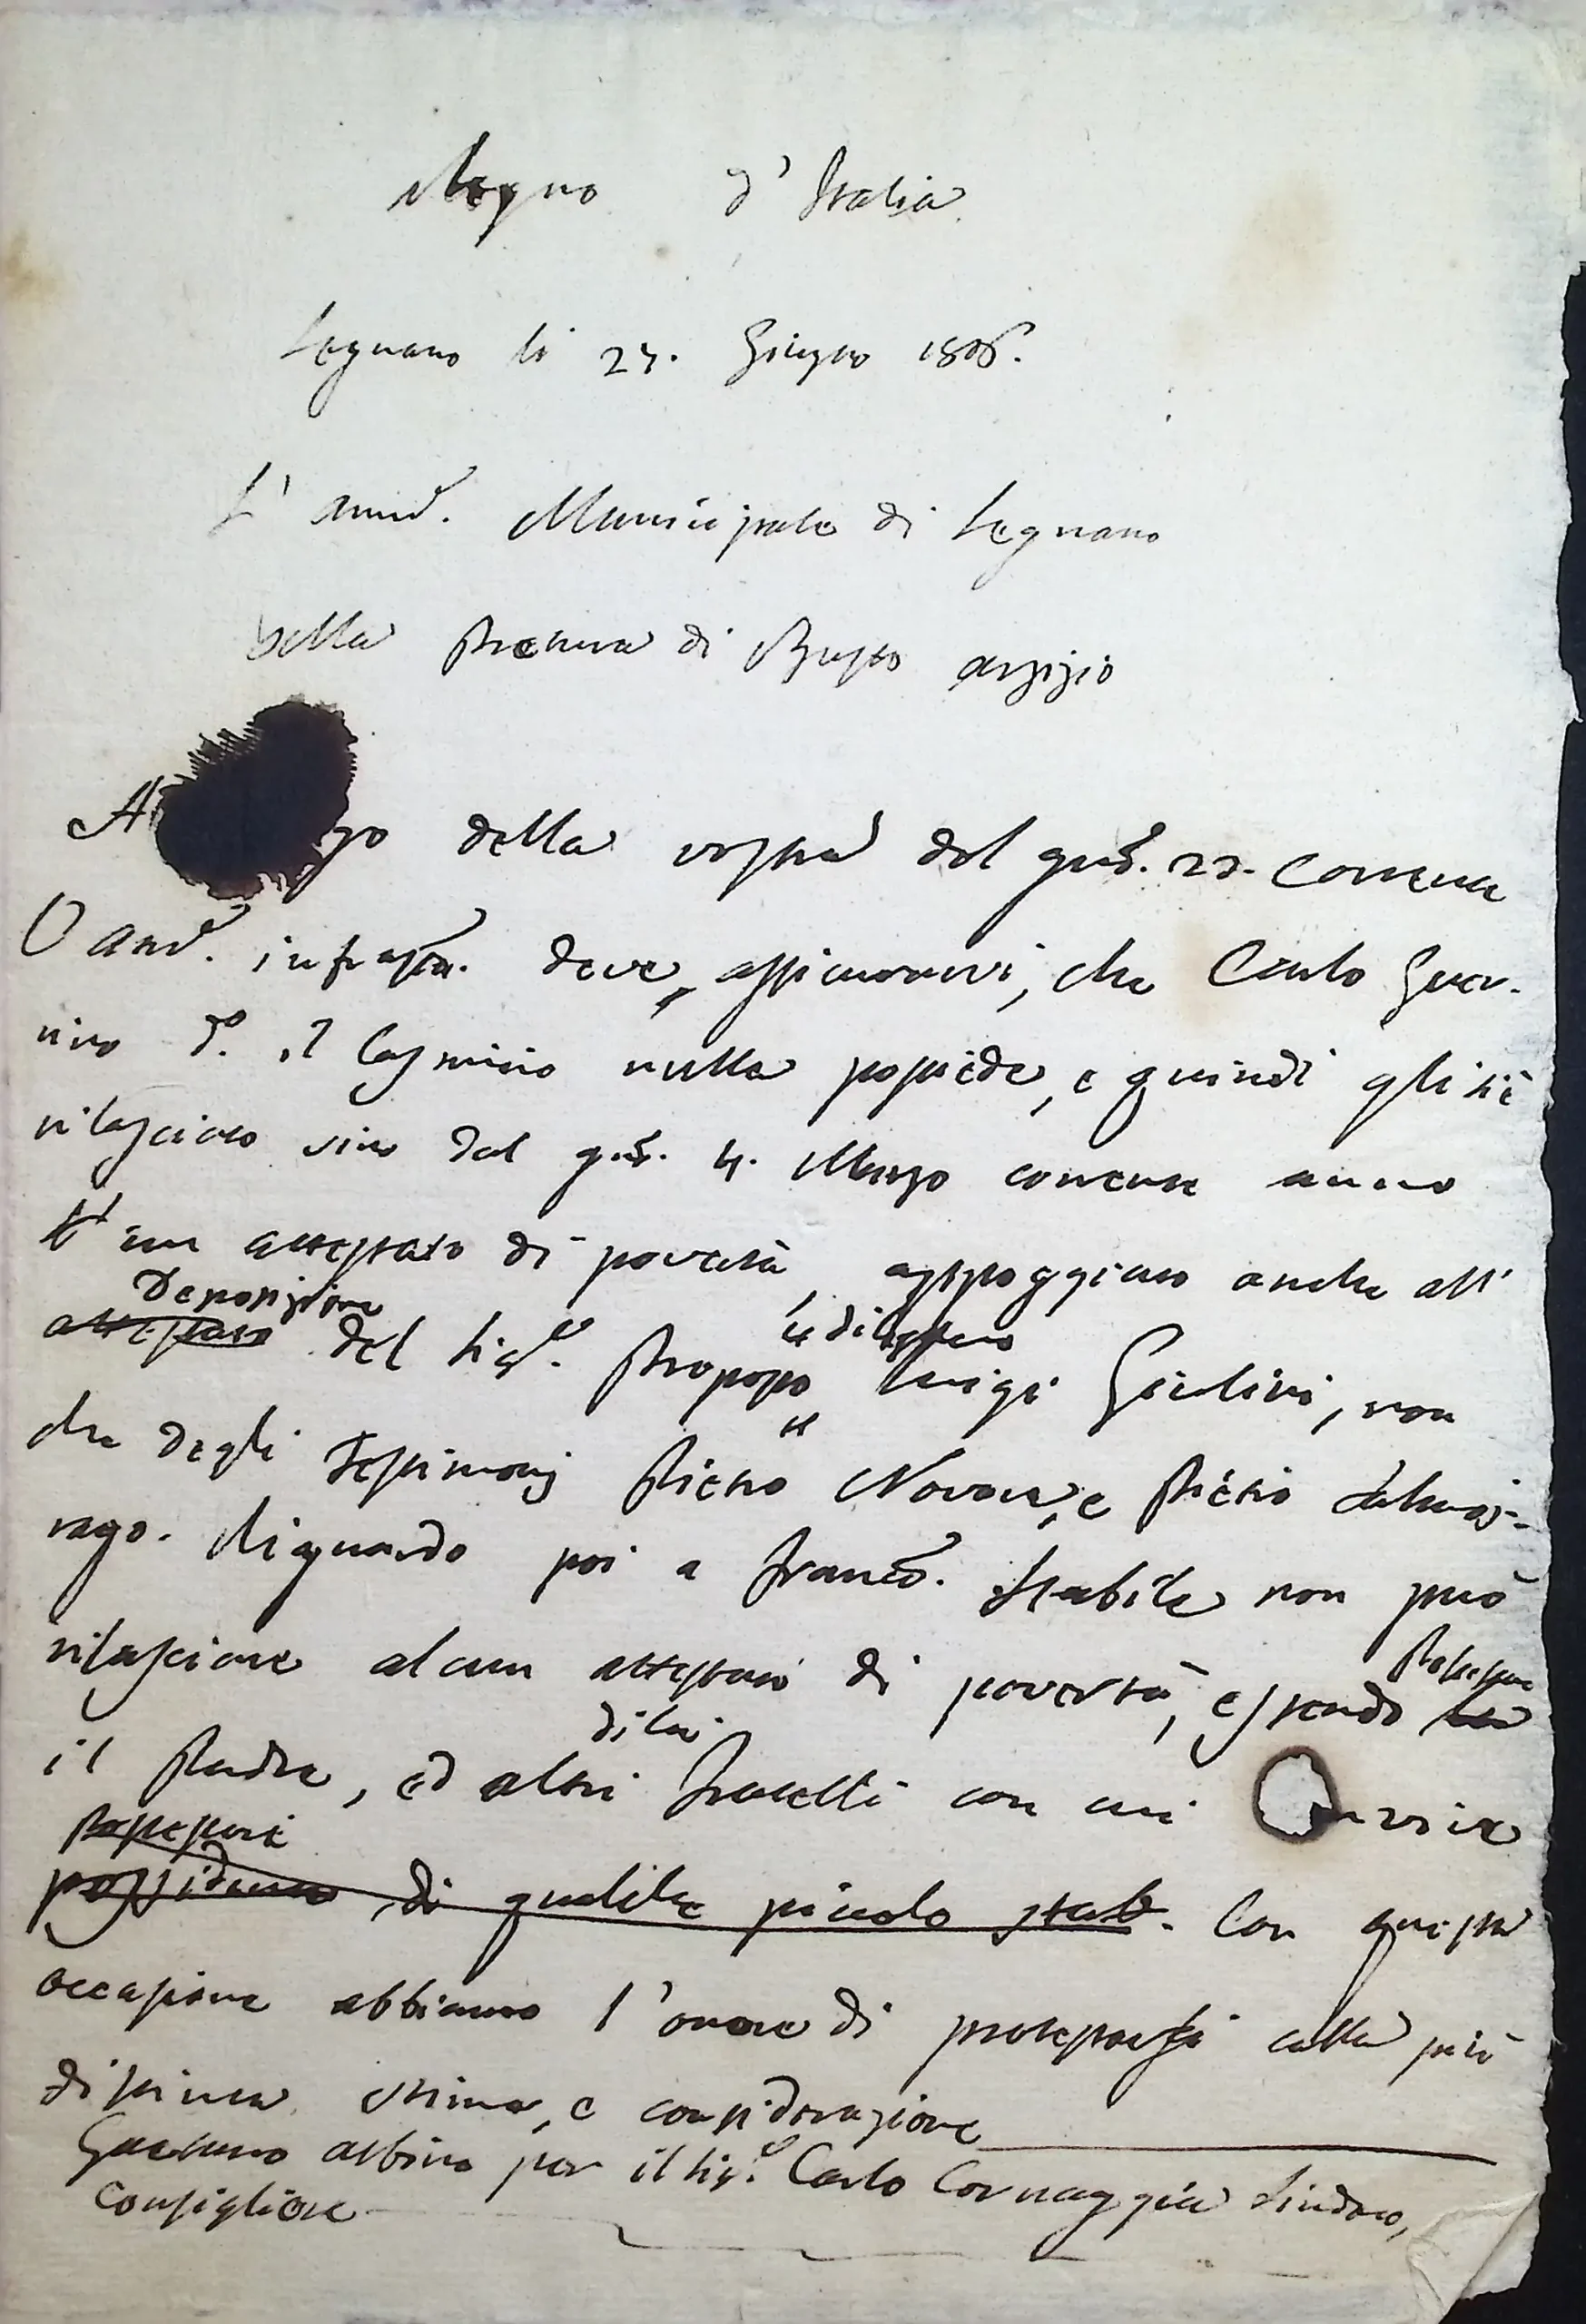 Regno d'Italia
Legnano li 27. Giugno 1806.
L' Amm.e Municipale di Legnano
Della Pretura di Busto Arsizio
A go della vostra del gno. 23. Corrente
l'Ame. infrasta. deve, assicurarvi, che Carlo Guer-
rino do. il nulla possiede, e quindi gli si è
rilasciato sino dal gno. 4. Marzo corrente anno
un attestato di povertà, appoggiato anche all'
Deposizione
attestato del Sigr. Proposto Luigi Giulini, non
che degli Testimonj Pietro Novara, e Pietro Salmoj-
rago. Riguardo poi a Franco. Stabile non può
rilasciare alcun attestato di povertà, essendo
Possessore
di lui
il Padre, ed altri fratelli con cui convive
Possessori
possidenti, di qualche piccolo stab. Con questa
occasione abbiamo l'onore di protestarsi colla più
distinta stima, e considerazione
Gaetano Albino per il Sigr. Carlo Cornaggia Sindaco,
Consigliere